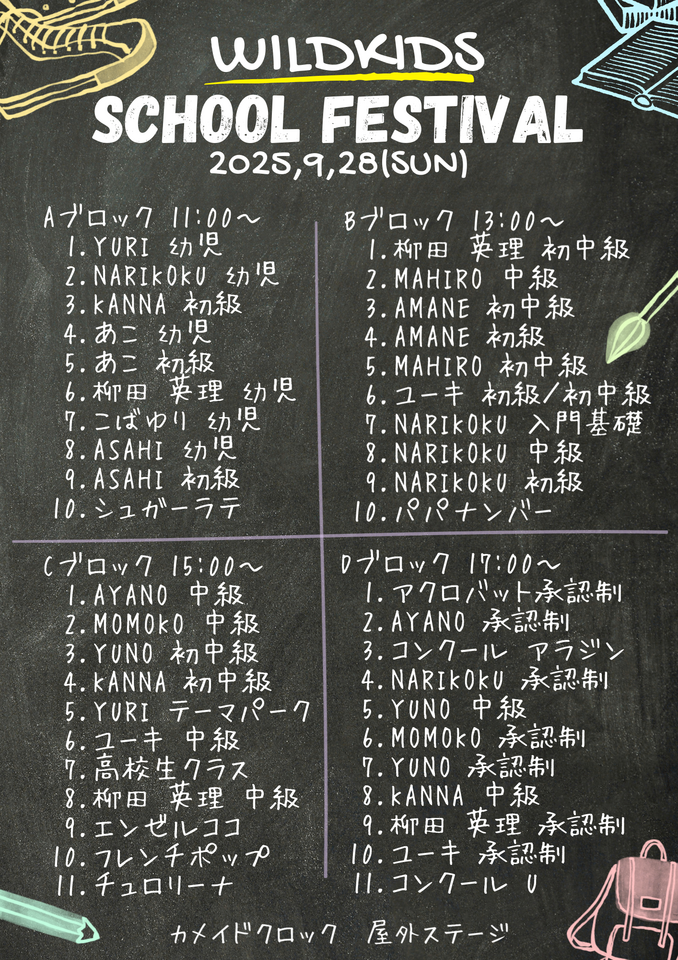 WILDKIDS
SCHOOL FESTIVAL
2025,9,28(SUN)
Aブロック 11:00〜
1.YURI 幼児
2.NARIKOKU 幼児
3.KANNA 初級
4.あこ 幼児
5.あこ 初級
6.柳田 英理 幼児
7.こばゆり 幼児
8.ASAHI 幼児
9.ASAHI 初級
10.シュガーラテ
Bブロック 13:00〜
1.柳田 英理 初中級
2.MAHIRO 中級
3.AMANE 初中級
4.AMANE 初級
5.MAHIRO 初中級
6.ユーキ 初級/初中級
7.NARIKOKU 入門基礎
8.NARIKOKU 中級
9.NARIKOKU 初級
10.パパナンバー
Cブロック 15:00〜
1.AYANO 中級
2.MOMOKO 中級
3.YUNO 初中級
4.KANNA 初中級
5.YURI テーマパーク
6.ユーキ 中級
7.高校生クラス
8.柳田 英理 中級
9.エンゼルココ
10.フレンチポップ
11.チュロリーナ
Dブロック 17:00〜
1.アクロバット承認制
2.AYANO 承認制
3.コンクール アラジン
4.NARIKOKU 承認制
5.YUNO 中級
6.MOMOKO 承認制
7.YUNO 承認制
8.KANNA 中級
9.柳田 英理 承認制
10.ユーキ 承認制
11.コンクール U
カメイドクロック 屋外ステージ